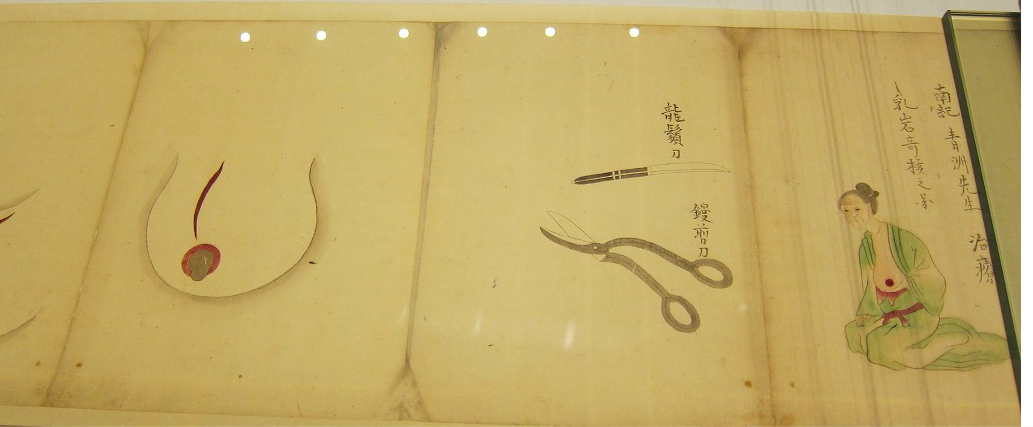 南紀 青洲先生 治療
乳岩奇核之図
龍鬚刀
鏝剪刀